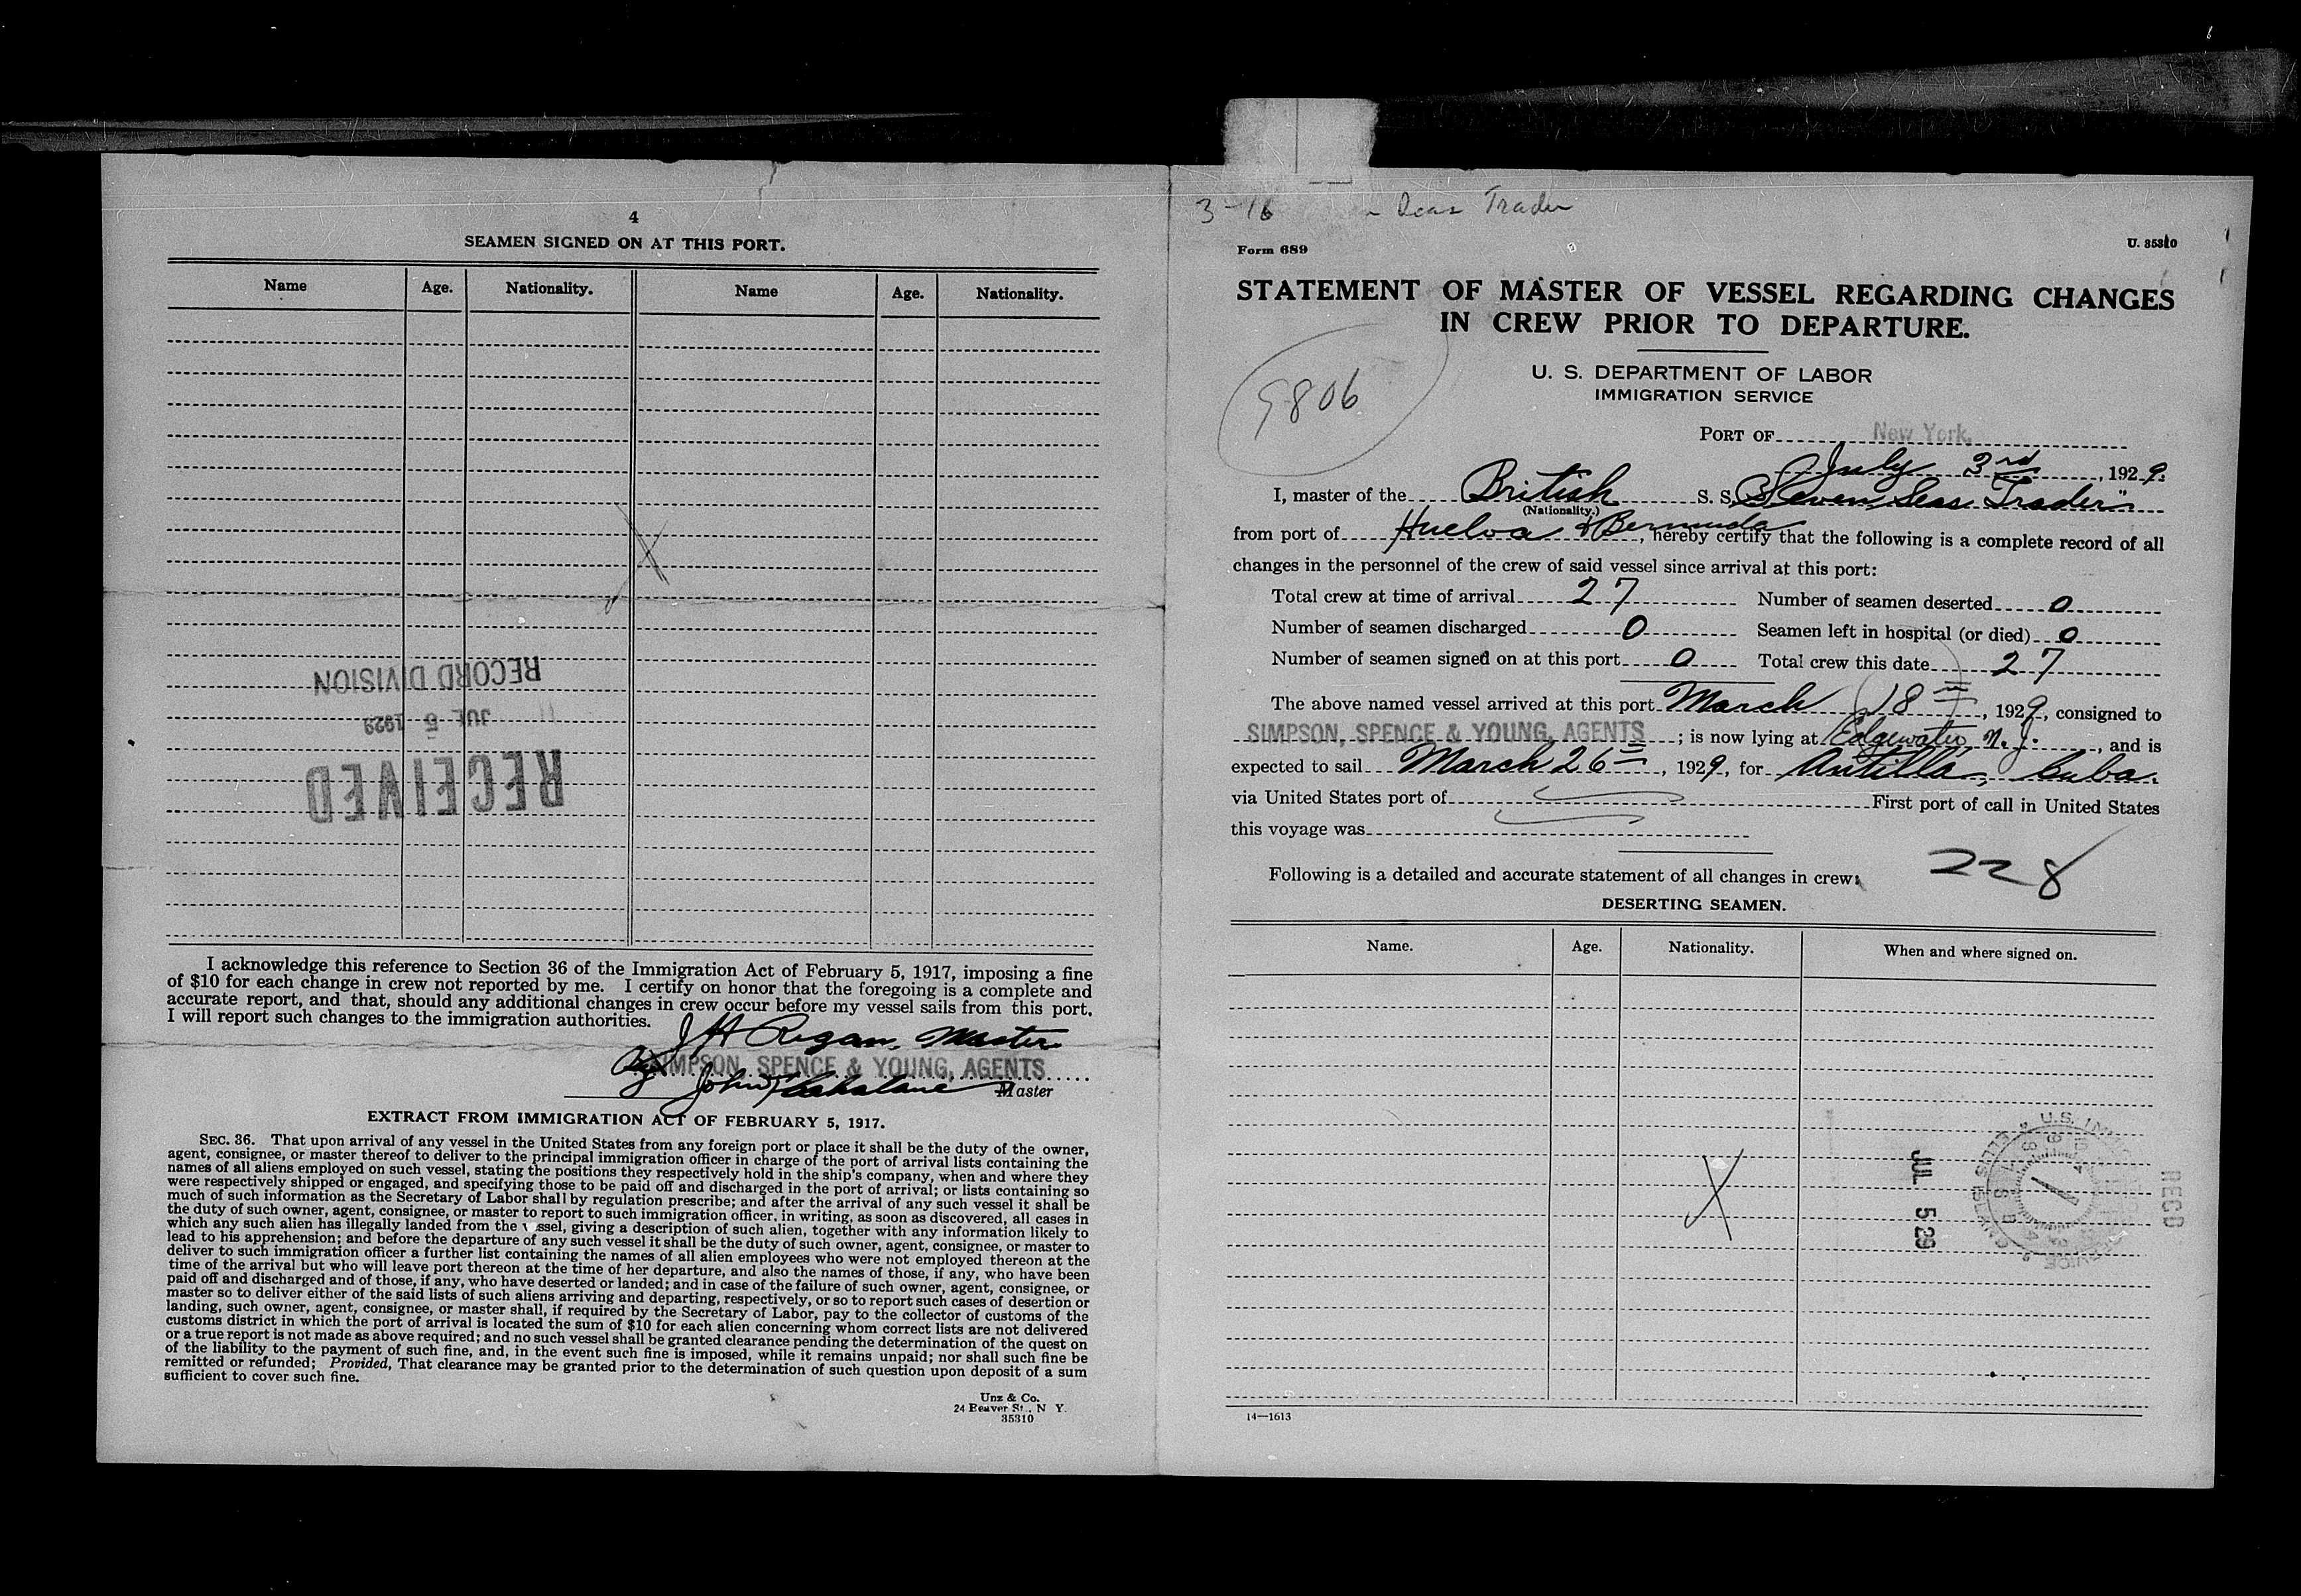 4
SEAMEN SIGNED ON AT THIS PORT.
Name Age. Nationality. Name Age. Nationality.
RECORD DIVISION
JUL 5 1929
RECEIVED
I acknowledge this reference to Section 36 of the Immigration Act of February 5, 1917, imposing a fine
of $10 for each change in crew not reported by me. I certify on honor that the foregoing is a complete and
accurate report, and that, should any additional changes in crew occur before my vessel sails from this port,
I will report such changes to the immigration authorities.
J H Regan, Master
By SIMPSON, SPENCE & YOUNG, AGENTS
John Master
EXTRACT FROM IMMIGRATION ACT OF FEBRUARY 5, 1917.
SEC. 36. That upon arrival of any vessel in the United States from any foreign port or place it shall be the duty of the owner,
agent, consignee, or master thereof to deliver to the principal immigration officer in charge of the port of arrival lists containing the
names of all aliens employed on such vessel, stating the positions they respectively hold in the ship's company, when and where they
were respectively shipped or engaged, and specifying those to be paid off and discharged in the port of arrival; or lists containing so
much of such information as the Secretary of Labor shall by regulation prescribe; and after the arrival of any such vessel it shall be
the duty of such owner, agent, consignee, or master to report to such immigration officer, in writing, as soon as discovered, all cases in
which any such alien has illegally landed from the vessel, giving a description of such alien, together with any information likely to
lead to his apprehension; and before the departure of any such vessel it shall be the duty of such owner, agent, consignee, or master to
deliver to such immigration officer a further list containing the names of all alien employees who were not employed thereon at the
time of the arrival but who will leave port thereon at the time of her departure, and also the names of those, if any, who have been
paid off and discharged and of those, if any, who have deserted or landed; and in case of the failure of such owner, agent, consignee, or
master so to deliver either of the said lists of such aliens arriving and departing, respectively, or so to report such cases of desertion or
landing, such owner, agent, consignee, or master shall, if required by the Secretary of Labor, pay to the collector of customs of the
customs district in which the port of arrival is located the sum of $10 for each alien concerning whom correct lists are not delivered
or a true report is not made as above required; and no such vessel shall be granted clearance pending the determination of the quest on
of the liability to the payment of such fine, and, in the event such fine is imposed, while it remains unpaid; nor shall such fine be
remitted or refunded; Provided, That clearance may be granted prior to the determination of such question upon deposit of a sum
sufficient to cover such fine.
Unz & Co.
24 Beaver St., N Y.
35310
3-16 Seas Trader
Form 689 U. 35310
STATEMENT OF MASTER OF VESSEL REGARDING CHANGES
IN CREW PRIOR TO DEPARTURE.
9806
U. S. DEPARTMENT OF LABOR
IMMIGRATION SERVICE
PORT OF New York,
July 3rd, 1929.
I, master of the British S. S. "Seven Seas Trader"
(Nationality.)
from port of Huelva & Bermuda, hereby certify that the following is a complete record of all
changes in the personnel of the crew of said vessel since arrival at this port:
Total crew at time of arrival 27 Number of seamen deserted 0
Number of seamen discharged 0 Seamen left in hospital (or died) 0
Number of seamen signed on at this port 0 Total crew this date 27
The above named vessel arrived at this port March 18th, 1929, consigned to
SIMPSON, SPENCE & YOUNG, AGENTS; is now lying at Edgewater N. J., and is
expected to sail March 26th, 1929, for Antilla, Cuba.
via United States port of First port of call in United States
this voyage was
Following is a detailed and accurate statement of all changes in crew: 228
DESERTING SEAMEN.
Name. Age. Nationality. When and where signed on.
X
JUL 5 29
RECD
14—1613